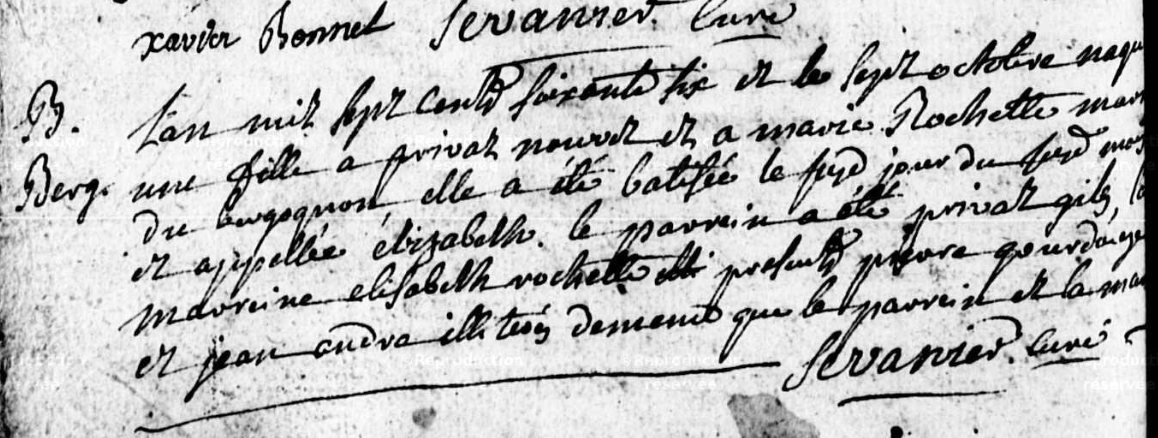 xavier Bonnet Servanier. Curé
B. L'an mil sept cents soixante six et le sept octobre naqu
Berg. une fille a privat nouvet et a marie Rochette mar
du bergognon, elle a été batisée le susd jour du susd mois
et appellée élizabeth. le parrein a été privat gils, la
marreine elisabeth rochette presents pierre gourdouze
et jean andre illiterés dememe que le parrein et la mar
Servanier. Curé